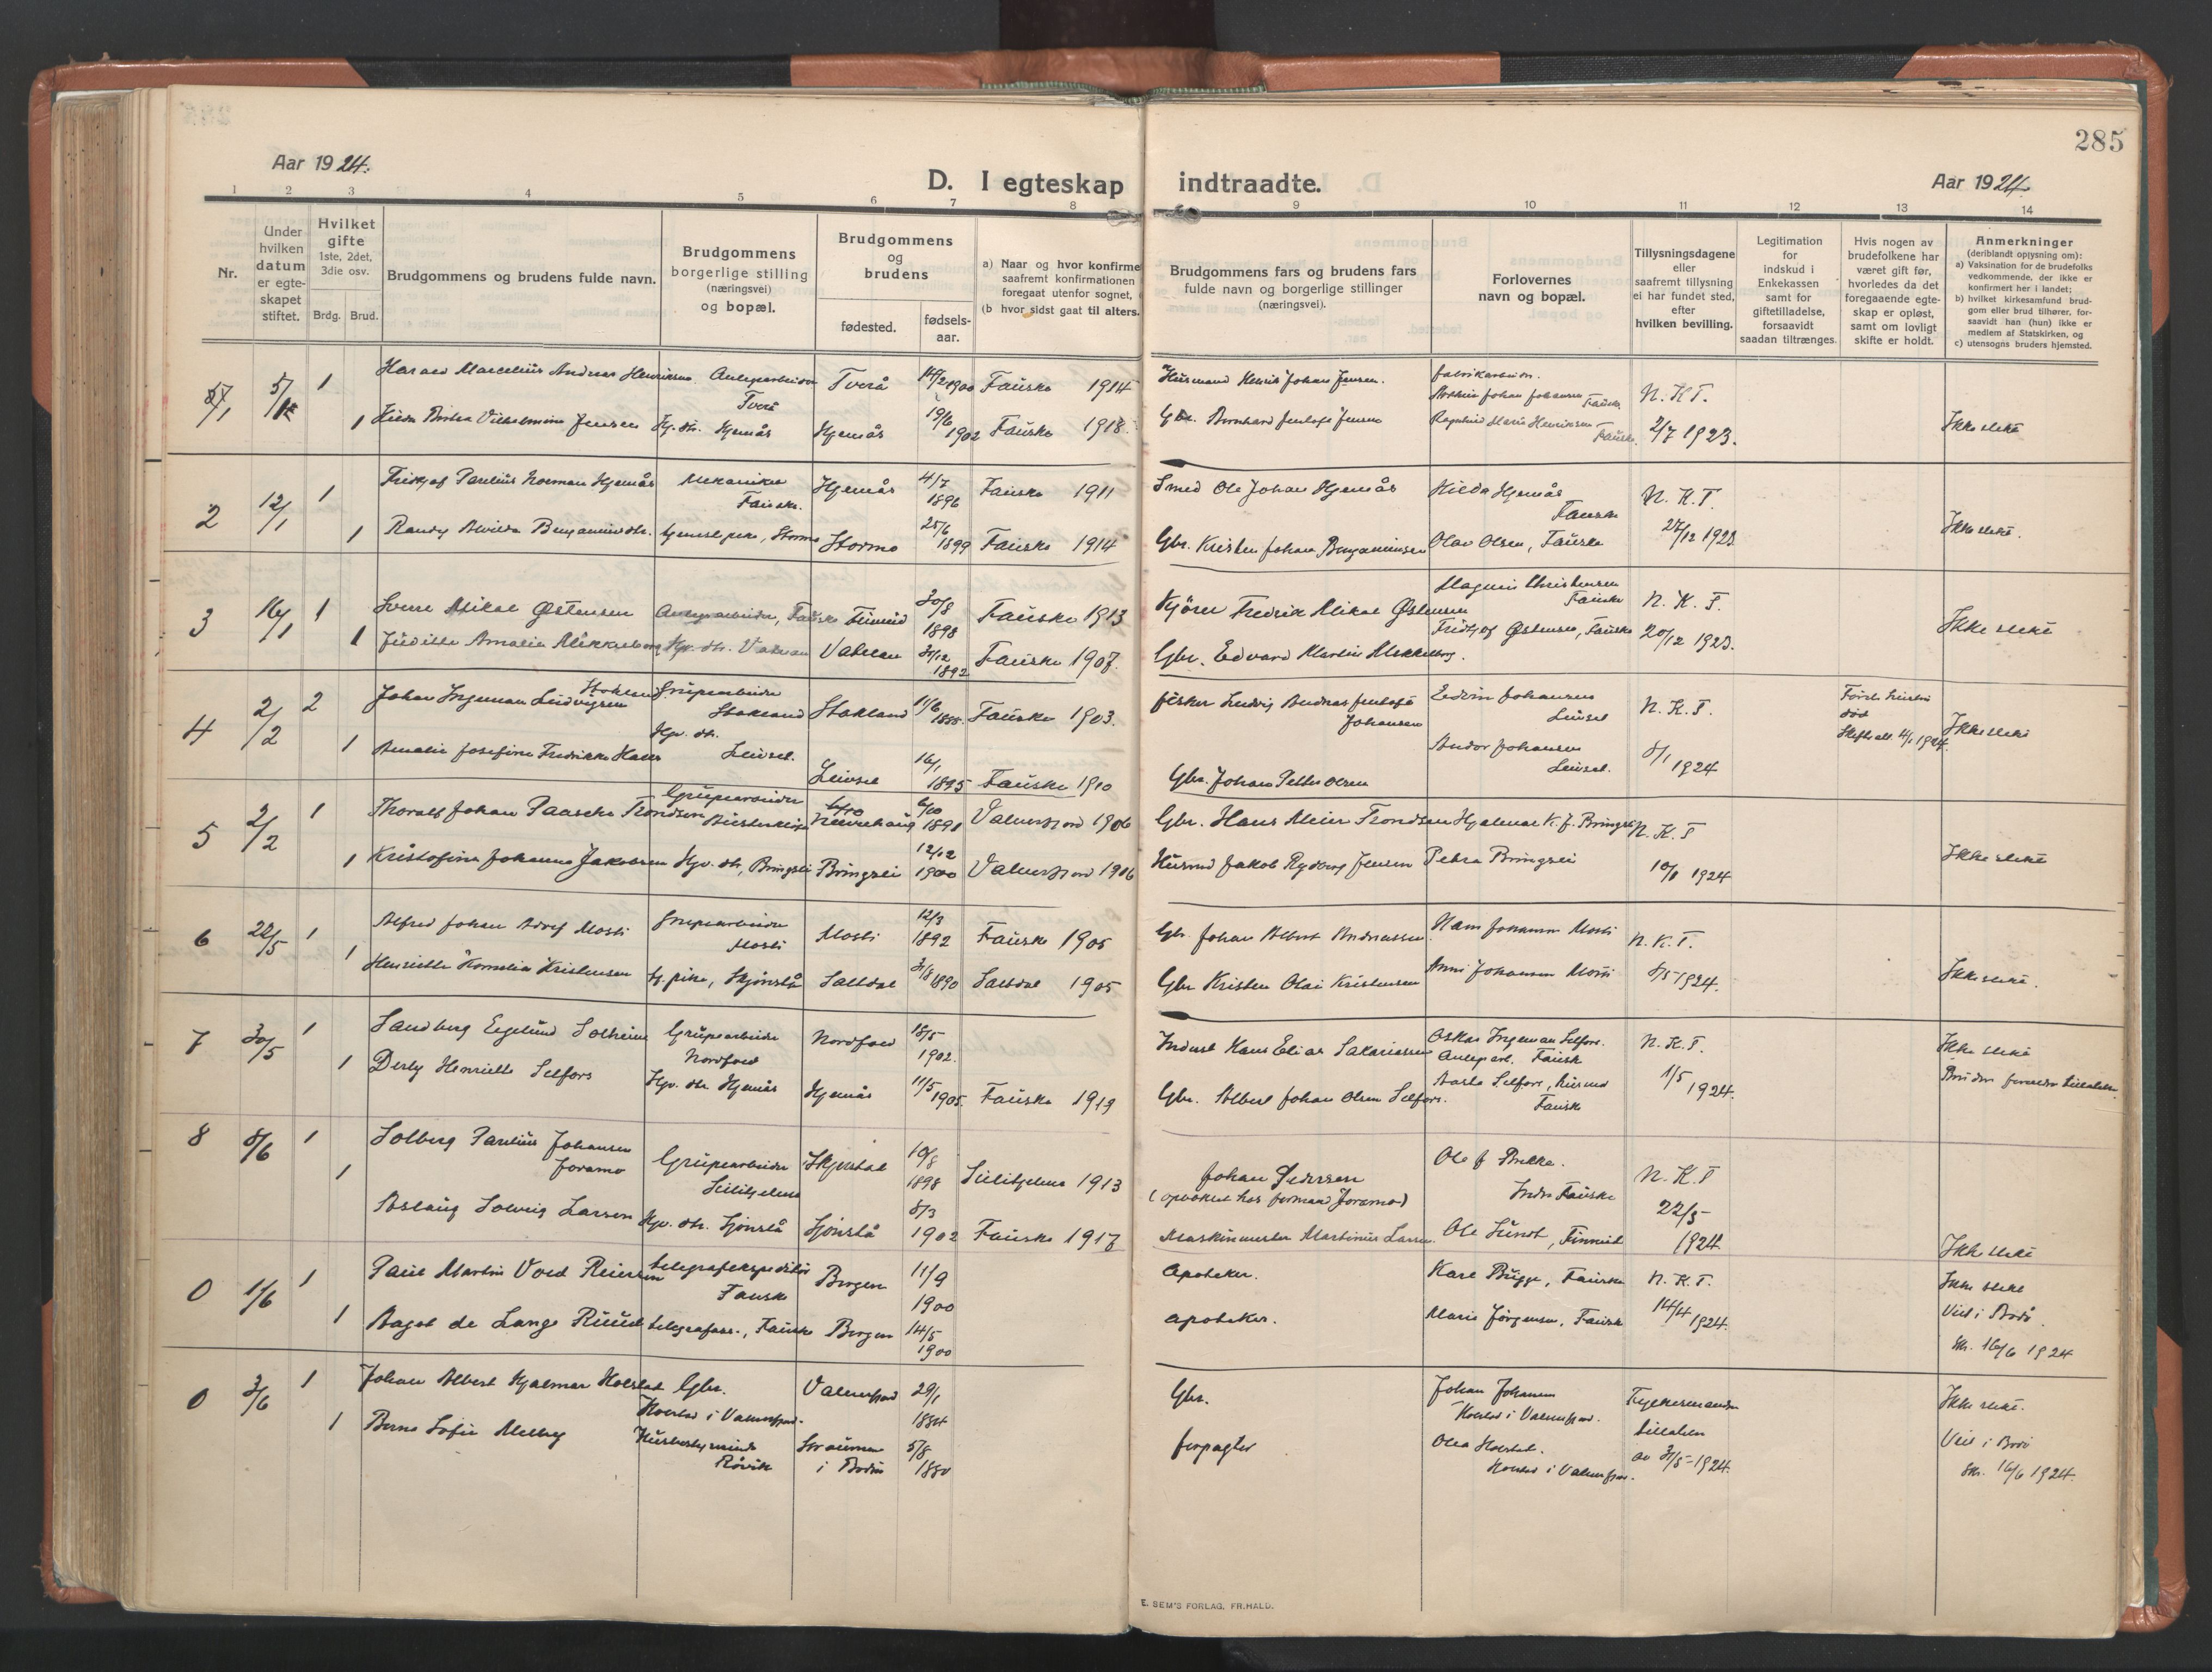 285
Aar 1924.
D. I egteskap indtraadte.
Aar 1924.
1 2 3 4 5 6 7 8 9 10 11 12 13 14
Nr.
Under hvilken datum er egteskapet stiftet.
Hvilket gifte 1ste, 2det, 3die osv.
Brdg. Brud.
Brudgommens og brudens fulde navn.
Brudgommens borgerlige stilling (næringsvei) og bopæl.
Brudgommens og brudens
fødested.
fødsels-aar.
a) Naar og hvor konfirme
saafremt konfirmationen
foregaat utenfor sognet,
(b hvor sidst gaat til alters.
Brudgommens fars og brudens fars
fulde navn og borgerlige stillinger
(næringsvei).
Forlovernes
navn og bopæl.
Tillysningsdagene
eller
saafremt tillysning
ei har fundet sted,
efter
hvilken bevilling.
Legitimation
for
indskud i
Enkekassen
samt for
giftetilladelse,
forsaavidt
saadan tiltrænges.
Hvis nogen av
brudefolkene har
været gift før,
hvorledes da det
foregaaende egte-
skap er opløst,
samt om lovligt
skifte er holdt.
Anmerkninger
(deriblandt opjysning om):
a) Vaksination for de brudefolks
vedkommende, der ikke er
konfirmert her i landet;
b) hvilket kirkesamfund brud-
gom eller brud tilhører, for-
saavidt han (hun) ikke er
medlem af Statskirken, og
c) utensogns bruders hjemsted.
1 Harald Marcelius Andreas Henriksen Tverå Tverå 1900 Fauske 1914
Husmand Henrik Johan Jensen. Fabrikarbeider. Johan Johansen Fauske N.K.T.
1 Vilhelmine Jensen Gp. dtr. Hjemås Hjemås 19/6 1902 Fauske 1918.
Bernhard Jentoft Jensen Ragnhild Marie Henriksen Fauske. 2/7 1923. Ikke slekt
2 12/1 1 Fridtjof Parelius Norman Hjemås Mekaniker Fauske. Hjemås 4/7 1896 Fauske 1911
Smed Ole Johan Hjemås Hilda Hjemås Fauske N.K.T.
1 Randy Alvilda Benjaminsdtr. Stormo Stormo 25/6 1899 Fauske 1914
Gbr. Kristen Johan Benjaminsen Olav Olsen, Fauske 27/12 1923. Ikke slekt.
3 16/1 1 Sverre Mikal Østensen Anlegsarbeider, Fauske Finneid 30/8 1898 Fauske 1913
Kjører Fredrik Mikal Østensen Magnus Christensen Fauske N.K.T.
1 Judithe Amalie Mikkelborg Gp. dtr. Valnean 31/12 1892 Fauske 1907.
Gbr. Edvard Martin Mikkelborg. Fridtjof Østensen, Fauske 20/12 1923. Ikke slekt
4 2/2 2 Johan Ingeman Ludvigsen Stokland Grubearbeider Stokland Stokland 11/6 1888 Fauske 1903.
Fisker Ludvig Andreas Jentoft Johansen Edvin Johansen Leivset N.K.T.
1 Amalie Josefine Fredrikke Hans Gp. dtr. Leivset. Leivset 16/1 1895 Fauske 1910
Gbr. Johan Petter Olsen Andor Johansen Leivset. 8/1 1924 Første hustru død Ikke slekt
5 2/2 1 Thoralf Johan Paasche Trondsen Grubearbeider 6/10 1891 Valnesfjord 1906
Gbr. Hans Meier Trondsen Hjalmar K. J. Bringsli N.K.T
1 Kristofine Johanna Jakobsen Gp. dtr, Bringsli Bringsli 12/12 1900 Valnesfjord 1916
Husmd Jakob Rydberg Jensen Petra Bringsli 10/1 1924 Ikke slekt
6 22/5 1 Alfred Johan Adolf Mosti Grubearbeider Mosti Mosti 12/3 1892 Fauske 1905
Gbr. Johan Albert Andreassen Hans Johansen Mosti N.K.T.
1 Henriette Kornelia Kristensen pike, Skjønstå Saltdal 31/8 1890 Saltdal 1905
Gbr Kristen Olai Kristensen Anni Johansen Mosti 8/5 1924. Ikke slekt.
7 30/5 1 Sandberg Egelund Solheim Grubearbeider Nordfold Nordfold 18/5 1902.
Hans Elias Sakariassen Oskar Ingeman Selfors. Anlegsarb. Fauske N.K.T. Ikke slekt
1 Derly Henriette Selfors Gp. dtr Hjemås Hjemås 11/5 1905. Fauske 1919
Gbr. Albert Johan Olsen Selfors. Selfors, husmd Fauske 1/5 1924.
8 8/6 1 Solberg Parelius Johansen Joramo Grubearbeider Sulitjelma 10/8 1898 Sulitjelma 1913
Johan Pedersen (opvokset hos formand Joramo) Ole J. Bakke. Indre Fauske N.K.T
1 Aslaug Solveig Larsen Gp. dtr. Sjønstå Sjønstå 8/3 1902 Fauske 1917
Maskinmester Martinus Larsen. Ole Sundt, Finneid 22/5 1924 Ikke slekt
0 1/6 1 Paul Martin Vold Reiersen telegrafekspeditør Fauske Bergen 11/9 1900
Apoteker. Kare Brygge, Fauske N.K.T. Ikke slekt
1 Aagot de Lange Ruud telegrafass., Fauske Bergen 14/5 1900
apoteker. Marie Jørgensen, Fauske 14/4 1924. Viet i Bodø. Skr. 16/6 1924
0 3/6 1 Johan Albert Hjalmar Holstad Gbr. Holstad i Valnesfjord. Valnesfjord 29/1 1884
Gbr. Johan Johansen Holstad i Valnesfjord. Fylkesmandens tilladelse Ikke slekt.
1 Berna Sofie Melby Husbestyrerinde Røvik Straumen i Bodin 5/8 1880
forpagter Olea Holstad. Holstad i Valnesfjord. av 31/5-1924. Viet i Bodø Skr. 16/6 1924.
E. SEM'S FORLAG, FR.HALD.